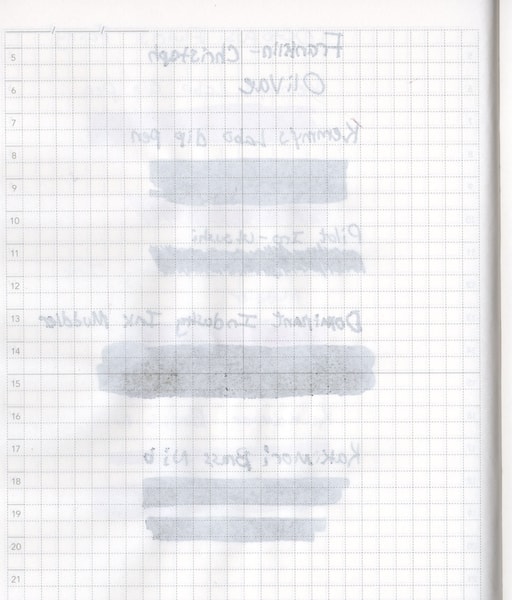 5 Franklin-Christoph
6 OliVae
7 Kemmy's Labo dip pen
8
9
10
Pilot Iro-utsushi
11
12
13 Dominant Industry Ink Muddler
14
15
16
17 Kakimori Brass Nib
18
19
20
21